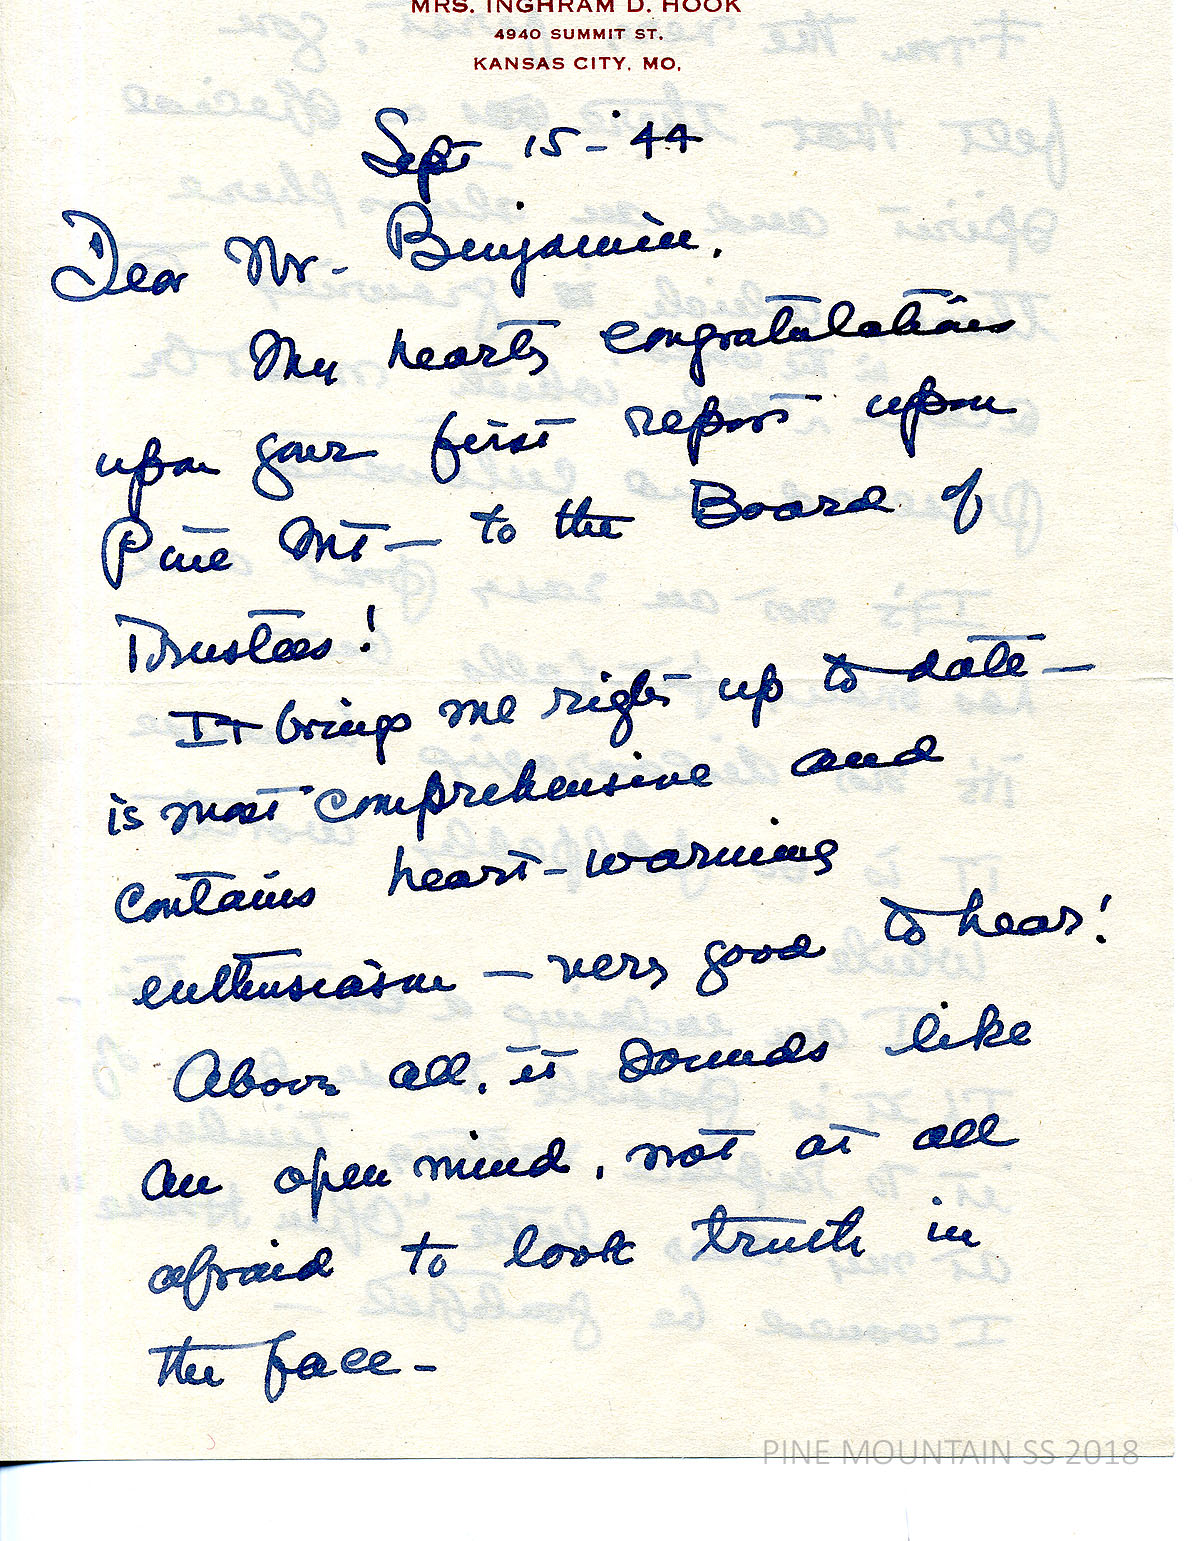 MRS. INGHRAM D. HOOK
4940 SUMMIT ST.
KANSAS CITY, MO.
Sept 15 - '44
Dear Mr. Benjamin,
My hearty congratulations
upon your first report upon
Pine Mt — to the Board of
Trustees!
It brings me right up to date —
is most comprehensive and
contains heart-warming
enthusiasm — very good to hear!
Above all, it sounds like
an open mind, not at all
afraid to look truth in
the face -
PINE MOUNTAIN SS 2018